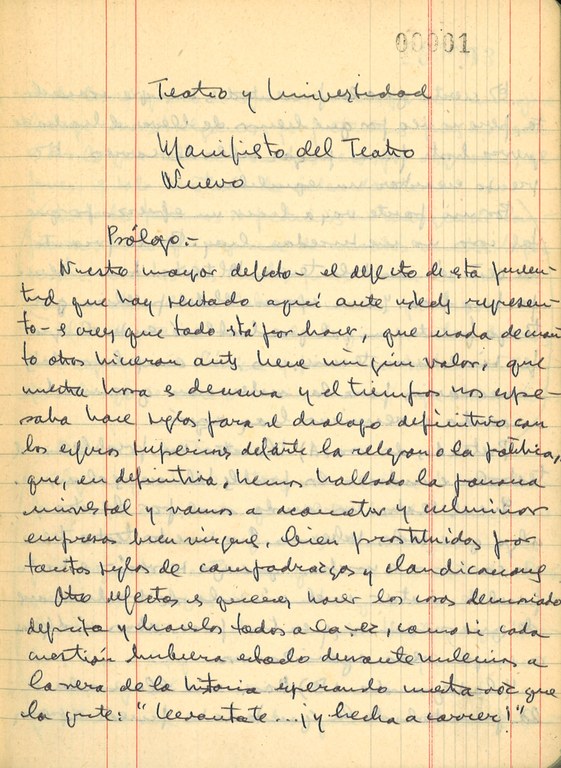 00001
Teatro y Universidad
Manifiesto del Teatro
Nuevo
Prólogo.-
Nuestro mayor defecto - el defecto de esta juven-
tud que hay sentado aquí ante ustedes represen-
to - es creer que todo está por hacer, que nada de cuan-
to otros hicieran antes tiene ningún valor, que
nuestra hora es decisiva y el tiempo nos espe-
raba hace siglos para el dialogo definitivo con
los seres superiores del arte la religion o la política,
que, en definitiva, hemos hallado la panacea
universal y vamos a acometer y culminar
empresas bien virgenes, bien prostituidas por
tantos siglos de compadrazgos y claudicaciones
Otro defecto es querer hacer las cosas demasiado
deprisa y hacerlos todos a la vez, como si cada
cuestión hubiera estado durante milenios a
la vera de la historia esperando nuestra voz que
la grite: "Levantate... ¡y hecha a correr!"